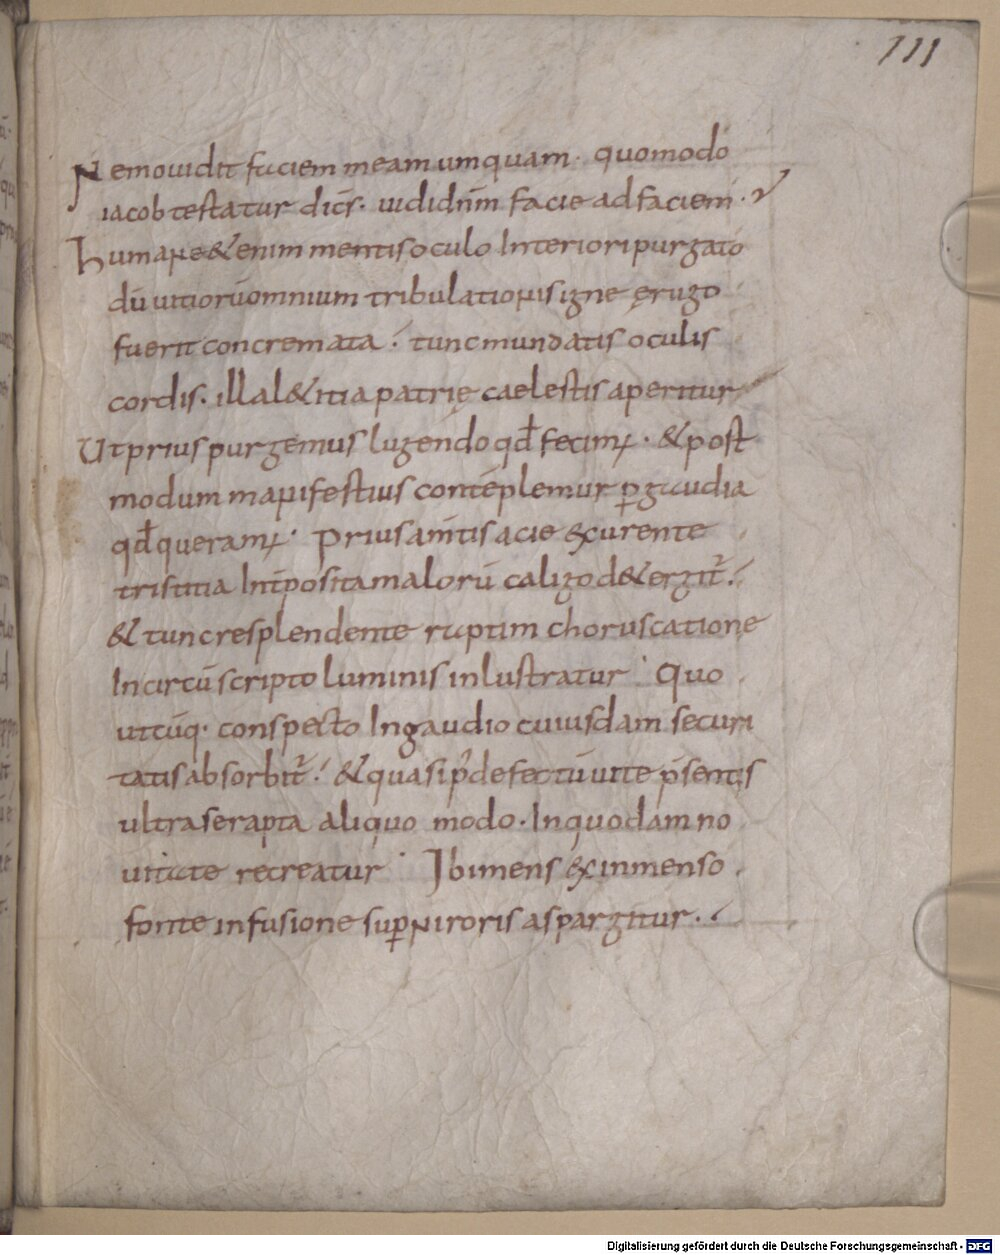 111
Nemo uidit faciem meam umquam · quomodo
iacob testatur dic̄s · uidi dn̄m facie ad faciem ·
Humane & enim mentis oculo Interiori purgato
dū uitiorū omnium tribulationis igne ęrugo
fuerit concremata · tunc mundatis oculis
cordis · illa l&itia patrię caelestis aperitur
Ut prius purgemus lugendo qd̄ fecim; · & post
modum manifestius contēplemur ꝑ gaudia
qd̄ queram; · Prius a m̄tis acie exurente
tristitia Inīposita malorū caligo d&ergit̄ ·
& tunc resplendente raptim choruscatione
Incircūscripto luminis inlustratur · Quo
utcūq · conspecto In gaudio cuiusdam securi
tatis absorbit̄ · & quasi p̄ defectū uite p̄sentis
ultra se rapta aliquo modo · In quodam no
uitate recreatur · Ibi mens ex inmenso
fonte infusione suꝑni roris aspargitur ·
Digitalisierung gefördert durch die Deutsche Forschungsgemeinschaft - DFG